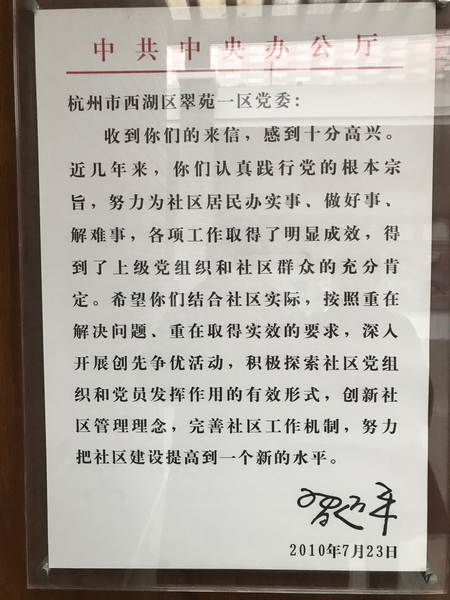 中共中央办公厅
杭州市西湖区翠苑一区党委：
收到你们的来信，感到十分高兴。
近几年来，你们认真践行党的根本宗
旨，努力为社区居民办实事、做好事、
解难事，各项工作取得了明显成效，得
到了上级党组织和社区群众的充分肯
定。希望你们结合社区实际，按照重在
解决问题、重在取得实效的要求，深入
开展创先争优活动，积极探索社区党组
织和党员发挥作用的有效形式，创新社
区管理理念，完善社区工作机制，努力
把社区建设提高到一个新的水平。
习近平
2010年7月23日